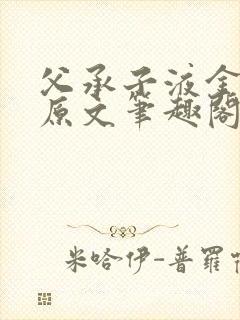 父承子液全
原文笔趣阁
米哈伊-普罗